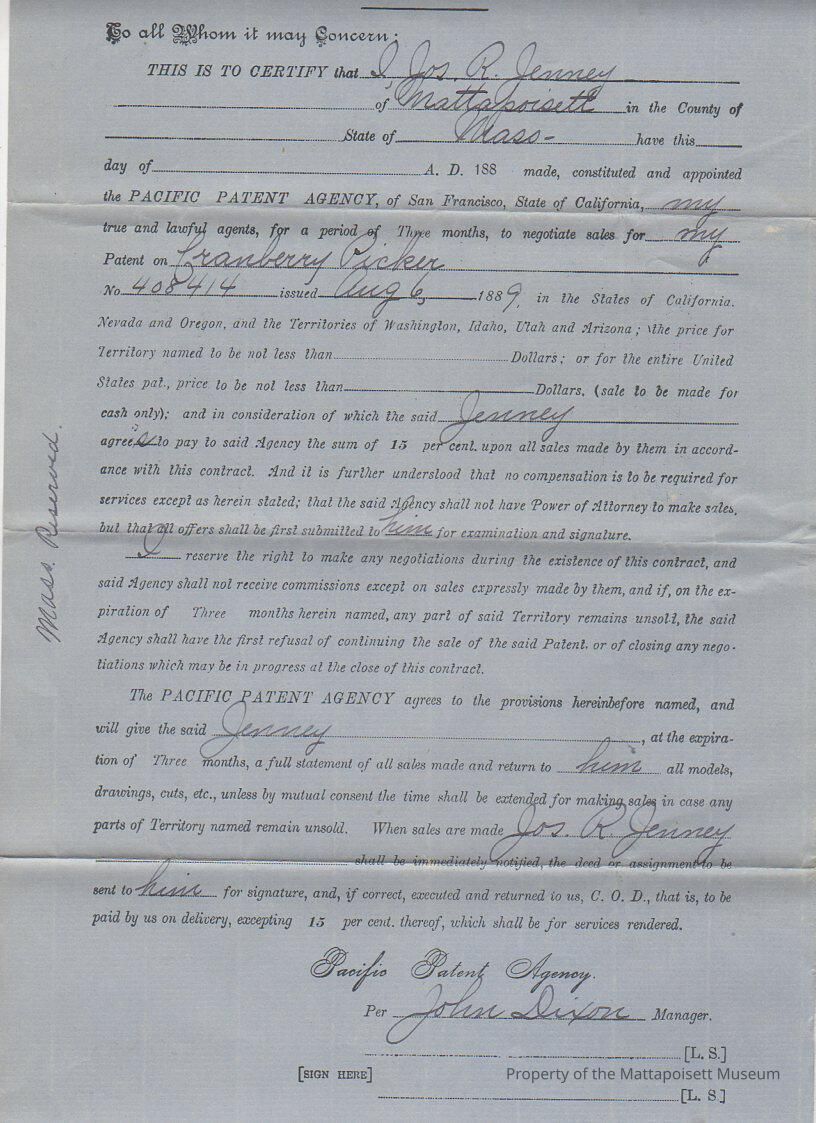 To all Whom it may Concern:
THIS IS TO CERTIFY that I, Jos. R. Jenney
of Mattapoisett in the County of
State of Mass- have this
day of A. D. 188 made, constituted and appointed
the PACIFIC PATENT AGENCY, of San Francisco, State of California, my
true and lawful agents, for a period of Three months, to negotiate sales for my
Patent on Cranberry Picker
No. 408414 issued Aug 6, 1889, in the States of California.
Nevada and Oregon, and the Territories of Washington, Idaho, Utah and Arizona; the price for
Territory named to be not less than Dollars; or for the entire United
States pat., price to be not less than Dollars, (sale to be made for
cash only); and in consideration of which the said Jenney
agrees to pay to said Agency the sum of 15 per cent. upon all sales made by them in accord-
ance with this contract. And it is further understood that no compensation is to be required for
services except as herein stated; that the said Agency shall not have Power of Attorney to make sales,
but that all offers shall be first submitted to him for examination and signature.
I reserve the right to make any negotiations during the existence of this contract, and
said Agency shall not receive commissions except on sales expressly made by them, and if, on the ex-
piration of Three months herein named, any part of said Territory remains unsold, the said
Agency shall have the first refusal of continuing the sale of the said Patent. or of closing any nego-
tiations which may be in progress at the close of this contract.
The PACIFIC PATENT AGENCY agrees to the provisions hereinbefore named, and
will give the said Jenney, at the expira-
tion of Three months, a full statement of all sales made and return to him all models,
drawings, cuts, etc., unless by mutual consent the time shall be extended for making sales in case any
parts of Territory named remain unsold. When sales are made Jos. R. Jenney
shall be immediately notified, the deed or assignment to be
sent to him for signature, and, if correct, executed and returned to us, C. O. D., that is, to be
paid by us on delivery, excepting 15 per cent. thereof, which shall be for services rendered.
Pacific Patent Agency.
Per John Dixon Manager.
[L. S.]
[SIGN HERE]
[L. S.]
Mass. Reserved.
Property of the Mattapoisett Museum